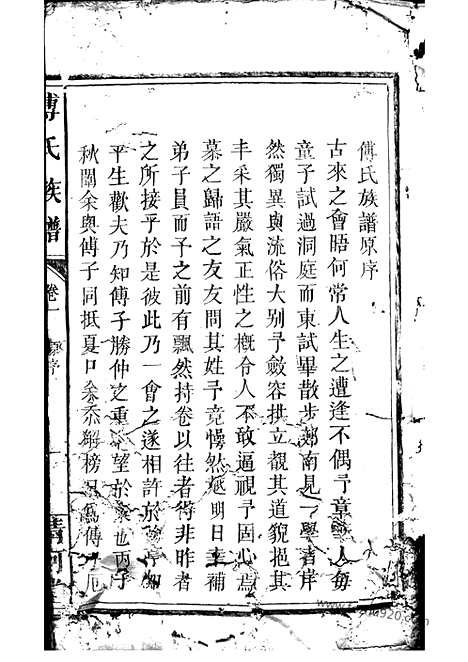 傅氏族譜原序
古來之會晤何常人生之遭逢不偶予童 人每
童子試過洞庭而東試畢散步郊南見一學者岸
然獨異與流俗大别予斂容拱立觀其道貌挹其
丰采其嚴氣正性之概令人不敢逼視予固心焉
慕之歸語之友友問其姓予竟懵然越明日主補
弟子員而予之前有飄然持卷以往者得非昨者
之所接乎於是彼此乃一會之遂相許於
平生歡夫乃知傅子勝仲之重 望於 也丙子
秋闈余與傅子同抵夏口余忝解榜 爲傅 厄
傅氏族譜
卷一
序
清河